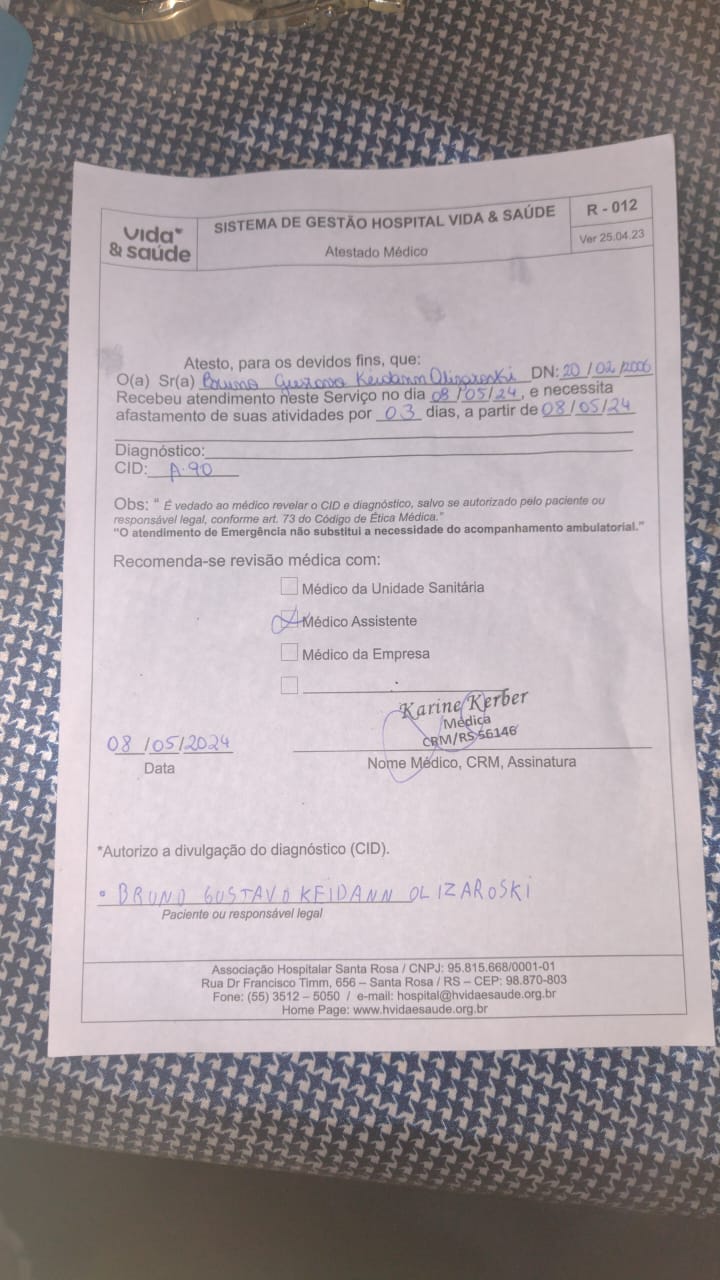 vida
& saúde
SISTEMA DE GESTÃO HOSPITAL VIDA & SAÚDE
Atestado Médico
R - 012
Ver 25.04.23
Atesto, para os devidos fins, que:
O(a) Sr(a) Bruno Gustavo Keidann Olizaroski DN: 20/02/2006
Recebeu atendimento neste Serviço no dia 08/05/24, e necessita
afastamento de suas atividades por 03 dias, a partir de 08/05/24
Diagnóstico:
CID: A.90
Obs: " É vedado ao médico revelar o CID e diagnóstico, salvo se autorizado pelo paciente ou
responsável legal, conforme art. 73 do Código de Ética Médica."
"O atendimento de Emergência não substitui a necessidade do acompanhamento ambulatorial."
Recomenda-se revisão médica com:
Médico da Unidade Sanitária
Médico Assistente
Médico da Empresa
Karine Kerber
Médica
CRM/RS 56146
08/05/2024
Data
Nome Médico, CRM, Assinatura
*Autorizo a divulgação do diagnóstico (CID).
BRUNO GUSTAVO KEIDANN OLIZAROSKI
Paciente ou responsável legal
Associação Hospitalar Santa Rosa / CNPJ: 95.815.668/0001-01
Rua Dr Francisco Timm, 656 – Santa Rosa / RS – CEP: 98.870-803
Fone: (55) 3512 – 5050 / e-mail: hospital@hvidaesaude.org.br
Home Page: www.hvidaesaude.org.br